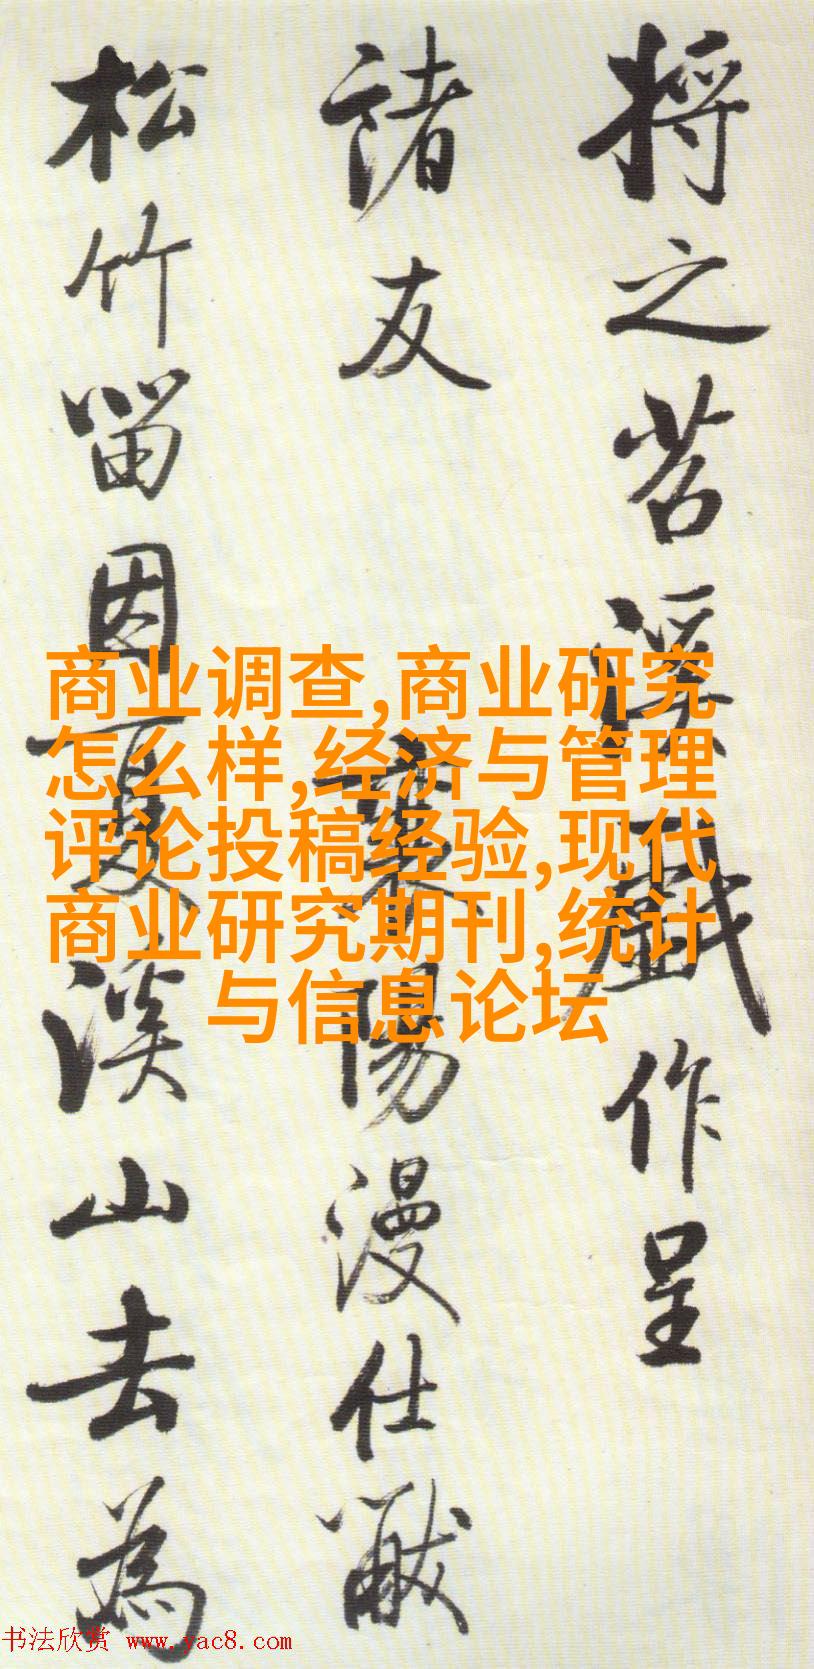 将之苕溪戲作呈
諸友 襄陽漫仕黻
松竹留因夏溪山去為
商业调查,商业研究
怎么样,经济与管理
评论投稿经验,现代
商业研究期刊,统计
与信息论坛
书法欣赏 www.yac8.com